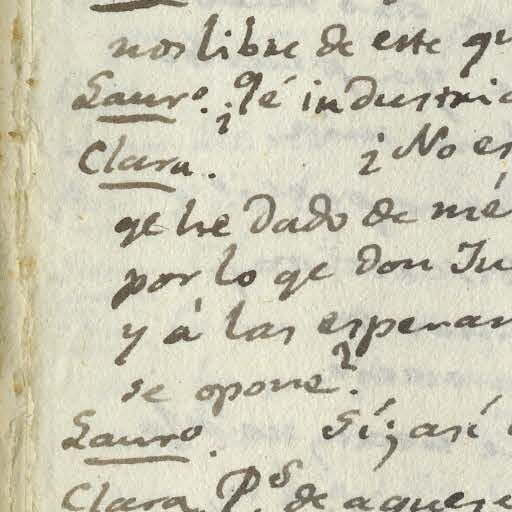 nos libre de este qu
Lauro. ¿qé industria
Clara. ¿No es
qe he dado de mé
por lo qe don Ju
y á las esperan
se opone?
Lauro. Sí; así
Clara. Ps. de aques